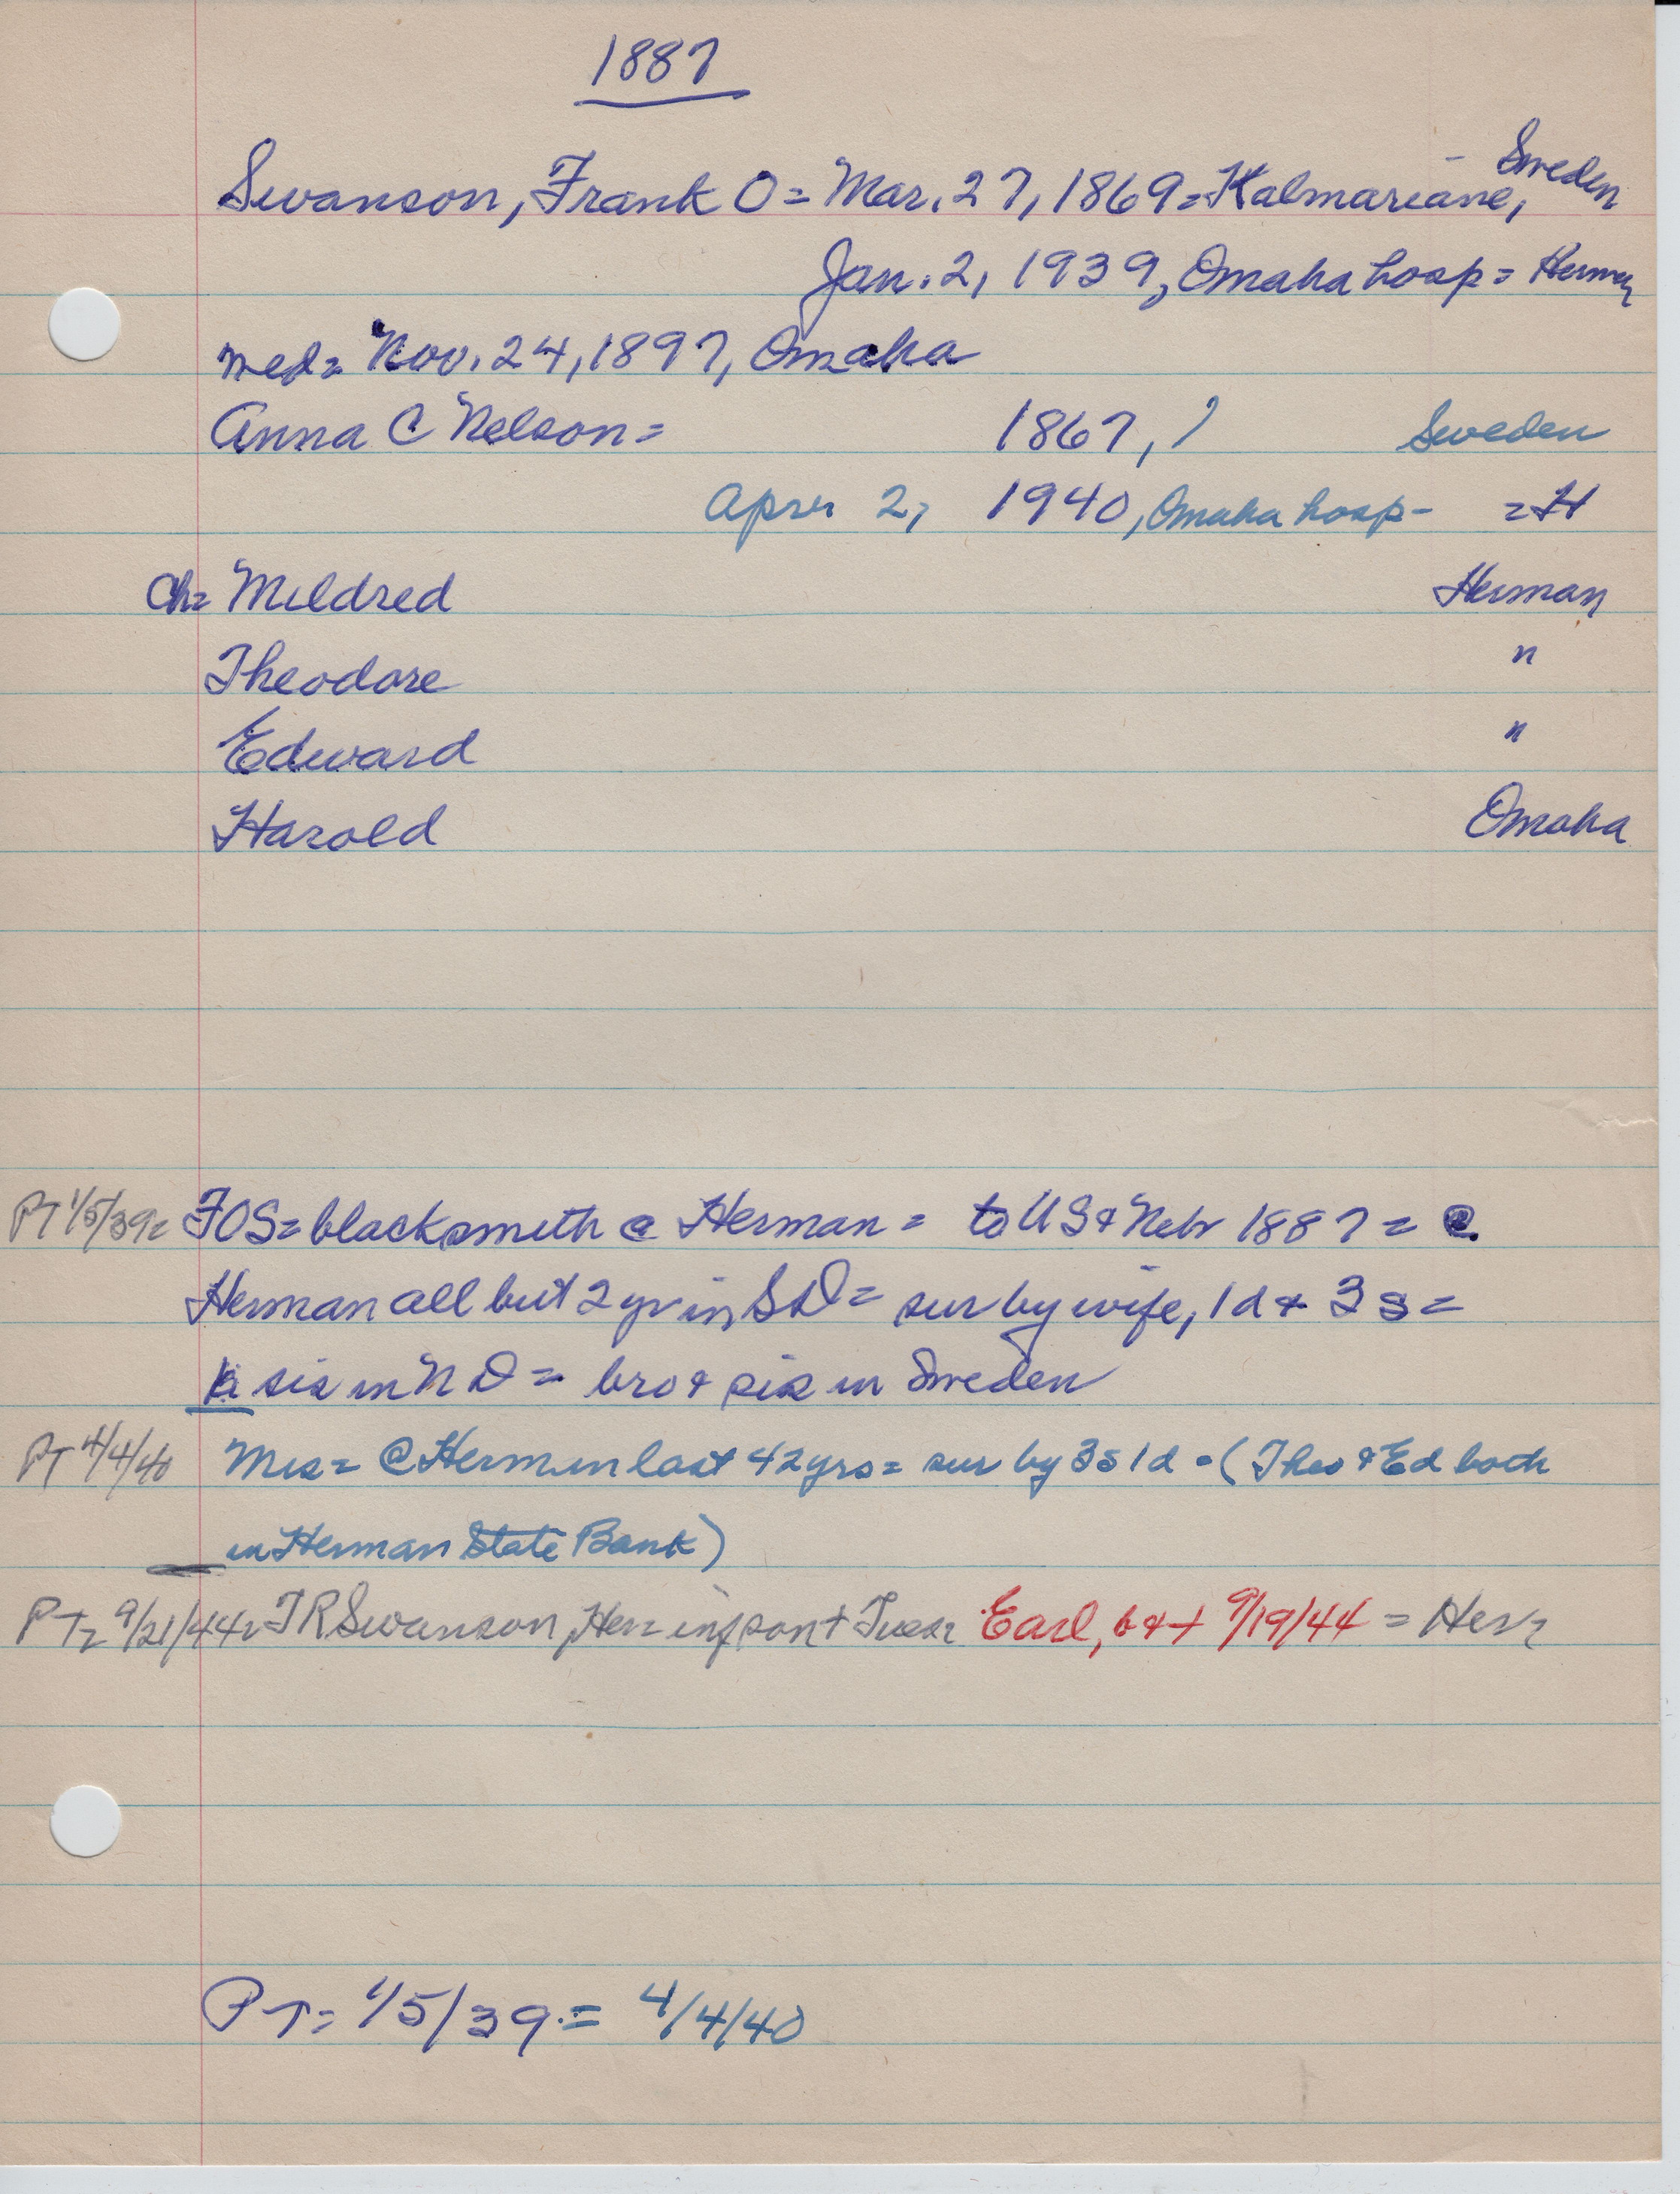 1887
Swanson, Frank O = Mar. 27, 1869 = Kalmariane, - Sweden
Jan. 2, 1939, Omaha hosp = Herman
med = Nov. 24, 1897, Omaha
Anna C Nelson = 1867, ) Sweden
Apr 2, 1940, Omaha hosp - = H
Ch = Mildred Herman
Theodore "
Edward "
Harold Omaha
PT 1/5/39 = FOS = blacksmith @ Herman = to US & Nebr 1887 = @
Herman all but 2 yr in SD = sur by wife, 1 d & 3 s =
sis in ND = bro & sis in Sweden
PT 4/4/40 Mrs = @ Herman last 42 yrs = sur by 3 s 1 d = (Theo & Ed both
in Herman State Bank)
PT = 9/21/44 = TR Swanson, Her = inf son + Tues = Earl, b & + 9/19/44 = Her =
PT = 1/5/39 = 4/4/40